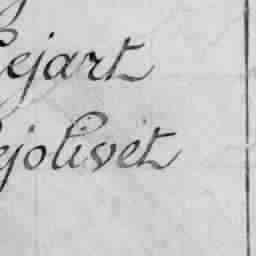 Lejart
Lejolivet